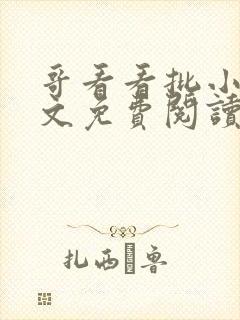 哥看看批小
文免費閱讀
扎西魯